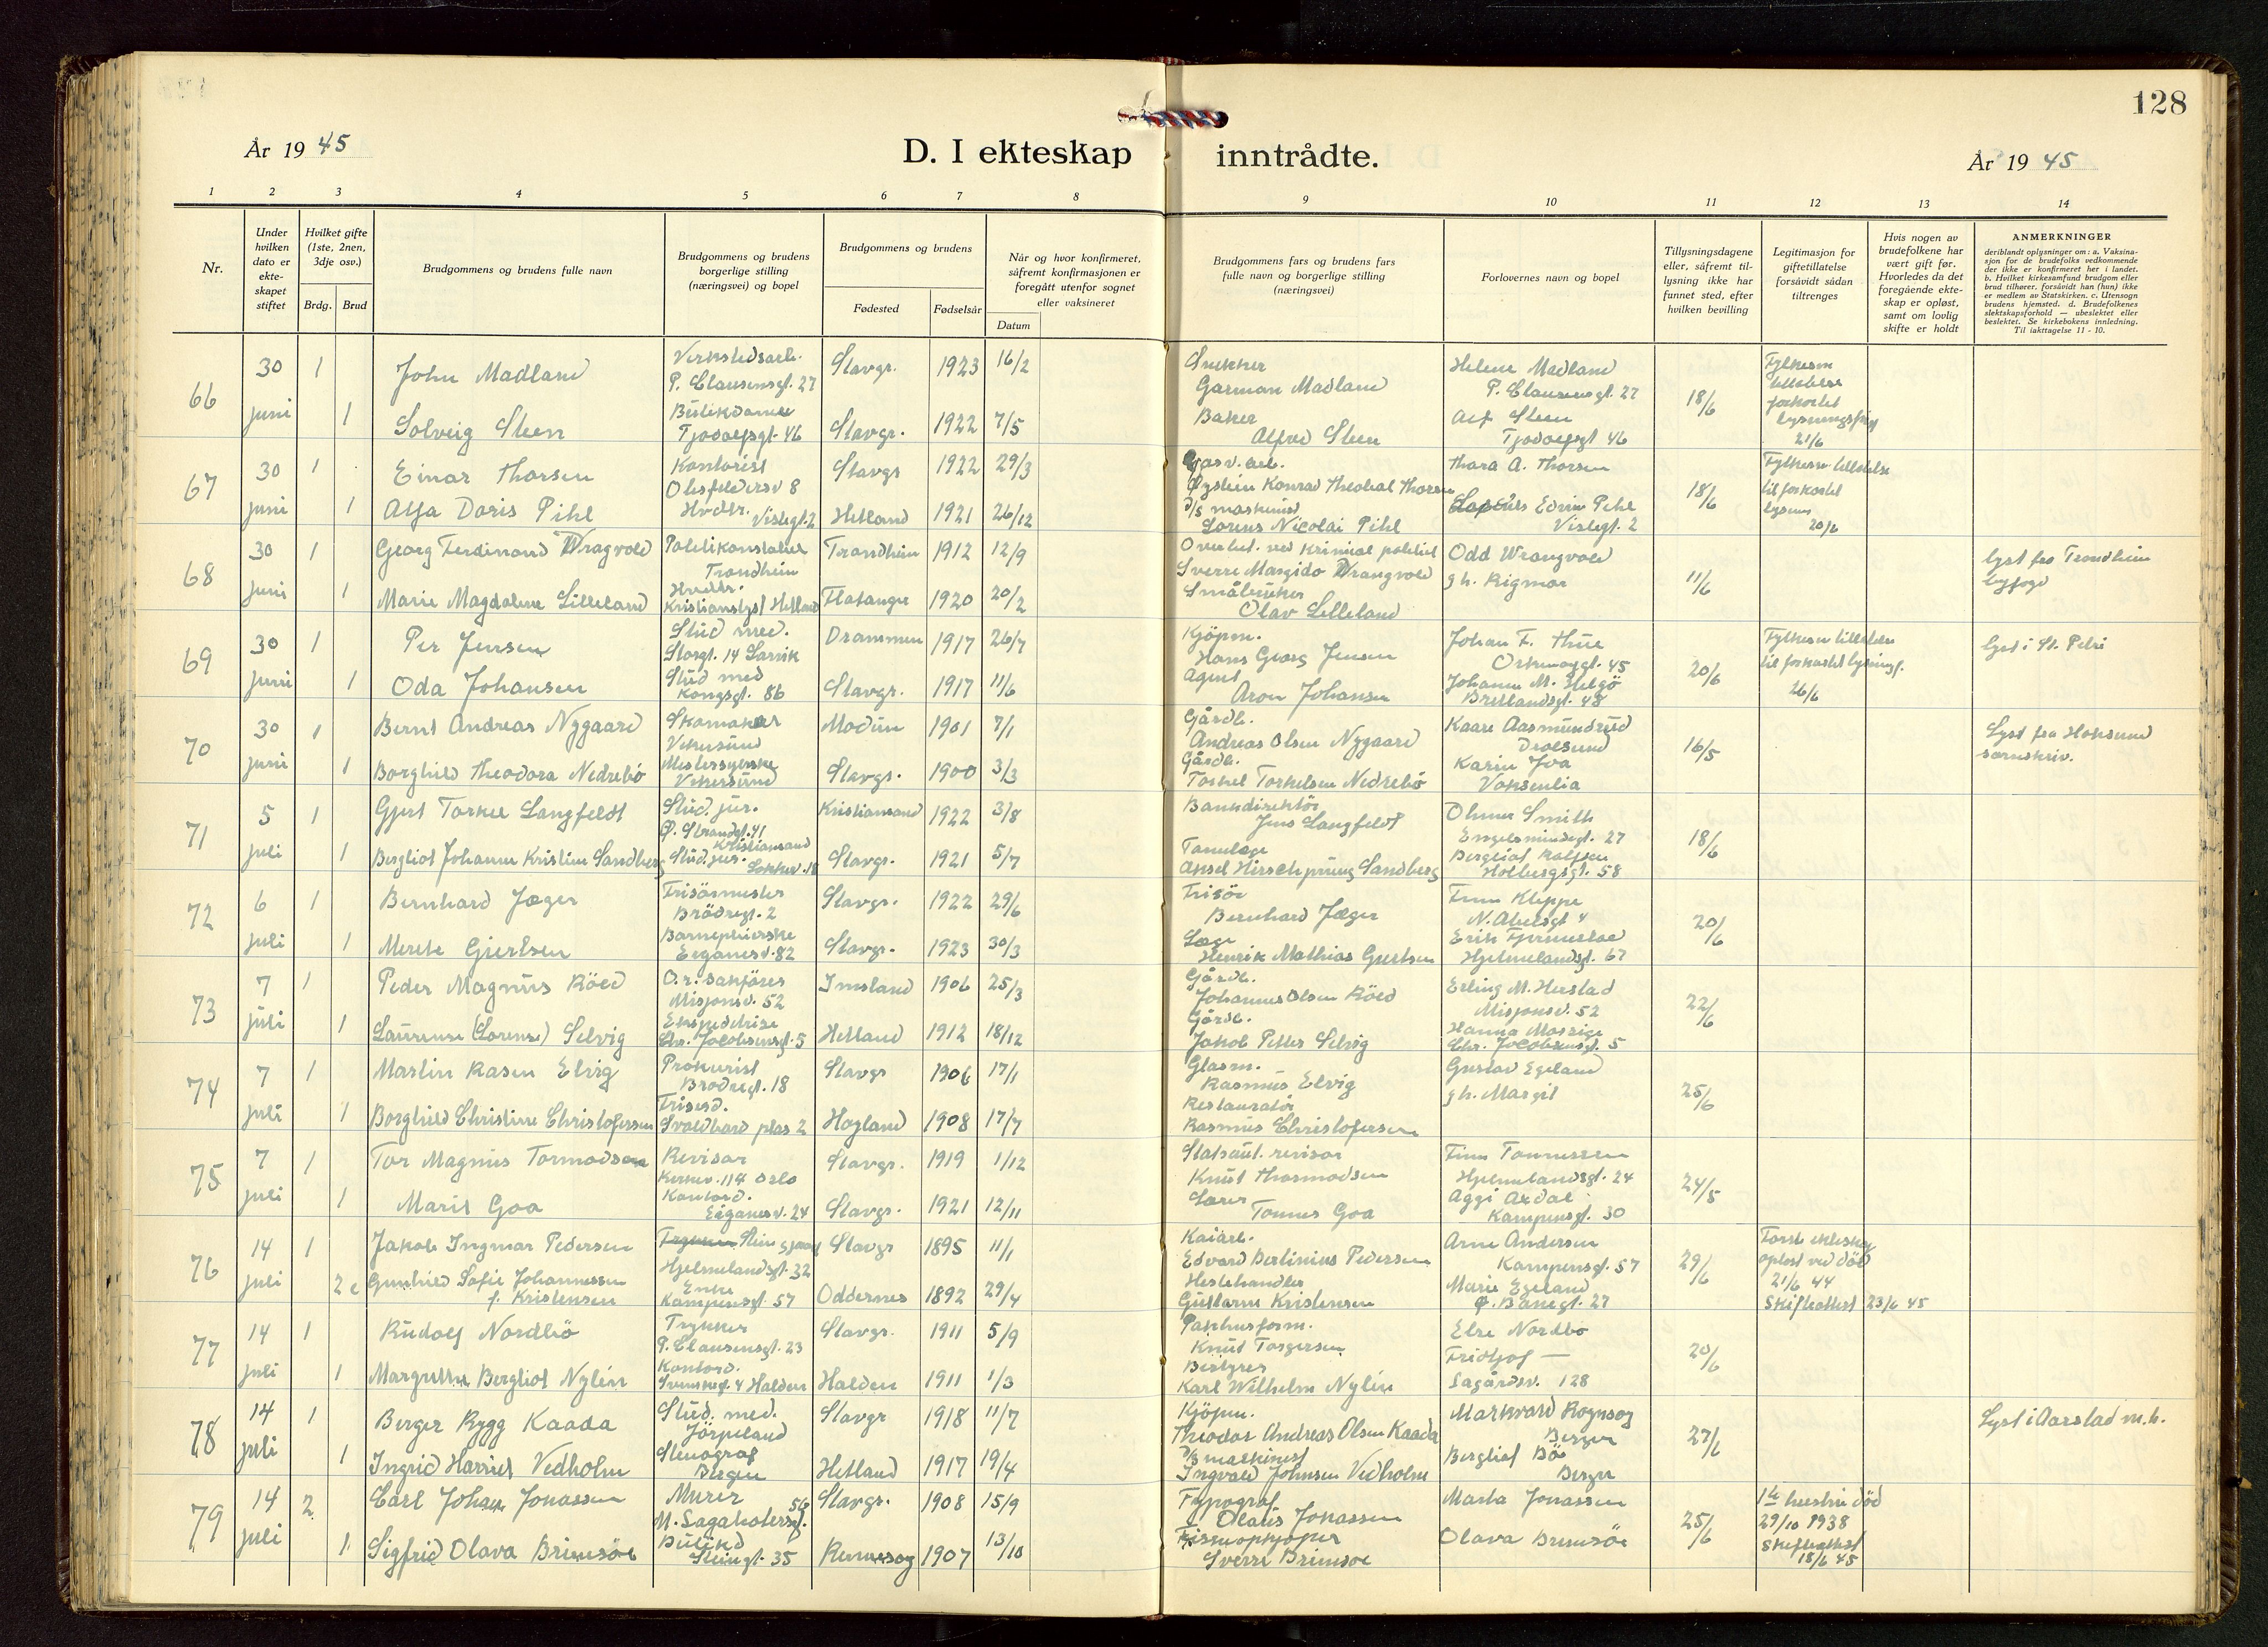 128
År 19 45
D. I ekteskap inntrådte.
År 19 45
1 2 3 4 5 6 7 8 9 10 11 12 13 14
Nr.
Under hvilken dato er ekte-skapet stiftet
Hvilket gifte (1ste, 2nen, 3dje osv.)
Brdg. Brud
Brudgommens og brudens fulle navn
Brudgommens og brudens borgerlige stilling (næringsvei) og bopel
Brudgommens og brudens
Fødested Fødselsår
Når og hvor konfirmeret, såfremt konfirmasjonen er foregått utenfor sognet eller vaksineret
Datum
Brudgommens fars og brudens fars fulle navn og borgerlige stilling (næringsvei)
Forlovernes navn og bopel
Tillysningsdagene eller, såfremt til-lysning ikke har funnet sted, efter hvilken bevilling
Legitimasjon for giftetillatelse forsåvidt sådan tiltrenges
Hvis nogen av brudefolkene har vært gift før. Hvorledes da det foregående ekte-skap er opløst, samt om lovlig skifte er holdt
ANMERKNINGER
deriblandt oplysninger om: a. Vaksina-sjon for de brudefolks vedkommende der ikke er konfirmeret her i landet. b. Hvilket kirkesamfund brudgom eller brud tilhører, forsåvidt han (hun) ikke er medlem av Statskirken. c. Utensogn brudens hjemsted. d. Brudefolkenes slektskapsforhold — ubeslektet eller beslektet. Se kirkebokens innledning. Til iakttagelse 11 - 10.
66 30 juni 1 John Madland Verkstedsarb. P. Clausensgt. 27 Stavgr. 1923 16/2 Snekker Garman Madland Helene Madland P. Clausensgt. 27 18/6 Fylkesm tillatelse forkortet lysningsfrist 21/6
1 Solveig Steen Butikdame Tjodolfsgt. 46 Stavgr. 1922 7/5 Baker Alfred Steen Alf Steen Tjodolfsgt 46
67 30 juni 1 Einar Thorsen Kontorist 8 Stavgr 1922 29/3 Gasv. arb. Øystein Konrad Theobal Thorsen Thora A. Thorsen 18/6 Fylkesm tillatelse til forkortet lysning 20/6
1 Alfa Doris Pihl Hvdtr. Vistegt. 2 Hetland 1921 26/12 D/S maskinist Lorens Nicolai Pihl Edvin Pihl Vistegt. 2
68 30 juni 1 Georg Ferdinand Wragvold Politikonstabel Trondheim Trondheim 1912 12/9 Overbet. ved Kriminal politiet Sverre Margido Wrangvold Odd Wrangvold 11/6 lyst fra Trondheim byfogd
1 Marie Magdalene Lilleland Husdtr. Kristianslyst Hetland Flatanger 1920 20/2 Småbruker Olav Lilleland gh. Rigmor
69 30 juni 1 Per Jensen Stud med. Storgt. 14 Larvik Drammen 1917 26/7 Kjöpm. Hans Georg Jensen Johan F. Thue Orknøygt. 45 20/6 Fylkesm tillatelse til forkortet lysningsf. 26/6 Lyst i St. Petri
1 Oda Johansen Stud med Kongsgt. 86 Stavgr. 1917 11/6 Agent Aron Johansen Johanne M. Helgö Bretlandsgt. 48
70 30 juni 1 Bernt Andreas Nygaard Skomaker Vikersund Modum 1901 7/1 Gårdb. Andreas Olsen Nygaard Kaare Aasmundrud Drolsund 16/5 Lyst fra Hokksund sorenskriv.
1 Borghild Theodora Nedrebö Vikersund Stavgr. 1900 3/3 Gårdb. Torkel Torkelsen Nedrebö Karin Voksenlia
71 5 juli 1 Gjert Torkel Langfeldt Stud. jur. Ø. Strandgt. 41 Kristiansand Kristiansand 1922 3/8 Bankdirektör Jens Langfeldt Olmer Smith Engelsmindegt. 27 18/6
1 Bergliot Johanne Kristine Sandberg Stud. jur. Stavgr. 1921 5/7 Tannlæge Aksel Hirschprung Sandberg Bergliot Rolfsen Holbergsgt. 58
72 6 juli 1 Bernhard Jæger Frisörmester Brödregt. 2 Stavgr. 1922 29/6 Frisör Bernhard Jæger Finn Kleppe N. Abelsgt 4 20/6
1 Merete Gjertsen Barnepleierske Eiganesv. 82 Stavgr. 1923 30/3 Læge Henrik Mathias Gjertsen Erik Hjelmelandsgt. 67
73 7 juli 1 Peder Magnus Röed O.r. sakförer Misjonsv. 52 Imsland 1906 25/3 Gårdb. Johannes Olsen Röed Erling M. Herstad Misjonsv. 52 22/6
1 Laurense (Lorense) Selvig Ekspeditrise Chr. Jacobsensgt. 5 Hetland 1912 18/12 Gårdb. Jakob Petter Selvig Hanna Mossige Chr. Jacobsensgt. 5
74 7 juli 1 Martin Rasen Elvig Prokurist Brödregt. 18 Stavgr 1906 17/1 Glasm. Rasmus Elvig Gustav Egeland 25/6
1 Borghild Christine Christofersen Frisørd. plas 2 Hogland 1908 17/7 Restauratör Rasmus Christofersen gh. Margit
75 7 juli 1 Tor Magnus Tormodsen Revisor Kirkev. 114 Oslo Stavgr. 1919 1/12 Statsaut. revisor Knut Thormodsen Finn Tonnessen Hjelmelandsgt. 24 24/5
1 Marit Goa Kontord. Eiganesv. 24 Stavgr. 1921 12/11 Lærer Tonnes Goa Aggi Axdal Kampensgt. 30
76 14 juli 1 Jakob Ingmar Pedersen Hjelmelandsgt. 32 Stavgr 1895 11/1 Kaiarb. Edvard Bertinius Pedersen Arne Andersen Kampensgt. 57 29/6 Forste ekteskap oplost ved död 21/6 44 Skifteattest 23/6 45
2 e Gunhild Sofie Johannessen f. Kristensen Enke Kampensgt. 57 Oddernes 1892 29/4 Hestehandler Kristensen Marie Egeland Ø. Banegt. 27
77 14 juli 1 Rudolf Nordbö Trykker P. Clausensgt. 23 Stavgr. 1911 5/9 Pakhusform. Knut Torgersen Else Nordbö 20/6
1 Margrethe Bergliot Nylén Kontord. 4 Halden Halden 1911 1/3 Bestyrer Karl Wilhelm Nylén Fridtjof — Lagårdsv. 128
78 14 juli 1 Berger Rygg Kaada Stud. med. Jörpeland Stavgr 1918 11/7 Kjöpm. Theodor Andreas Olsen Kaada Markvard Bergen 27/6 Lyst i Aarstad m.h.
1 Ingrid Harriet Vedholm Stenograf Bergen Hetland 1917 19/4 D/S maskinist Ingvald Johnsen Vedholm Bergliot Bö Bergen
79 14 juli 2 Carl Johan Jonassen Murer M. Sagabotersgt. 56 Stavgr. 1908 15/9 Typograf Olaus Jonassen Marta Jonassen 25/6 1ste hustru död 29/10 1938 Skifteattest 18/6 45
1 Sigfrid Olava Brimsöe Butikd Steingt. 35 Rennesøy 1907 13/10 Fiskeopkjøper Sverre Brimsoe Olava Brimsöe